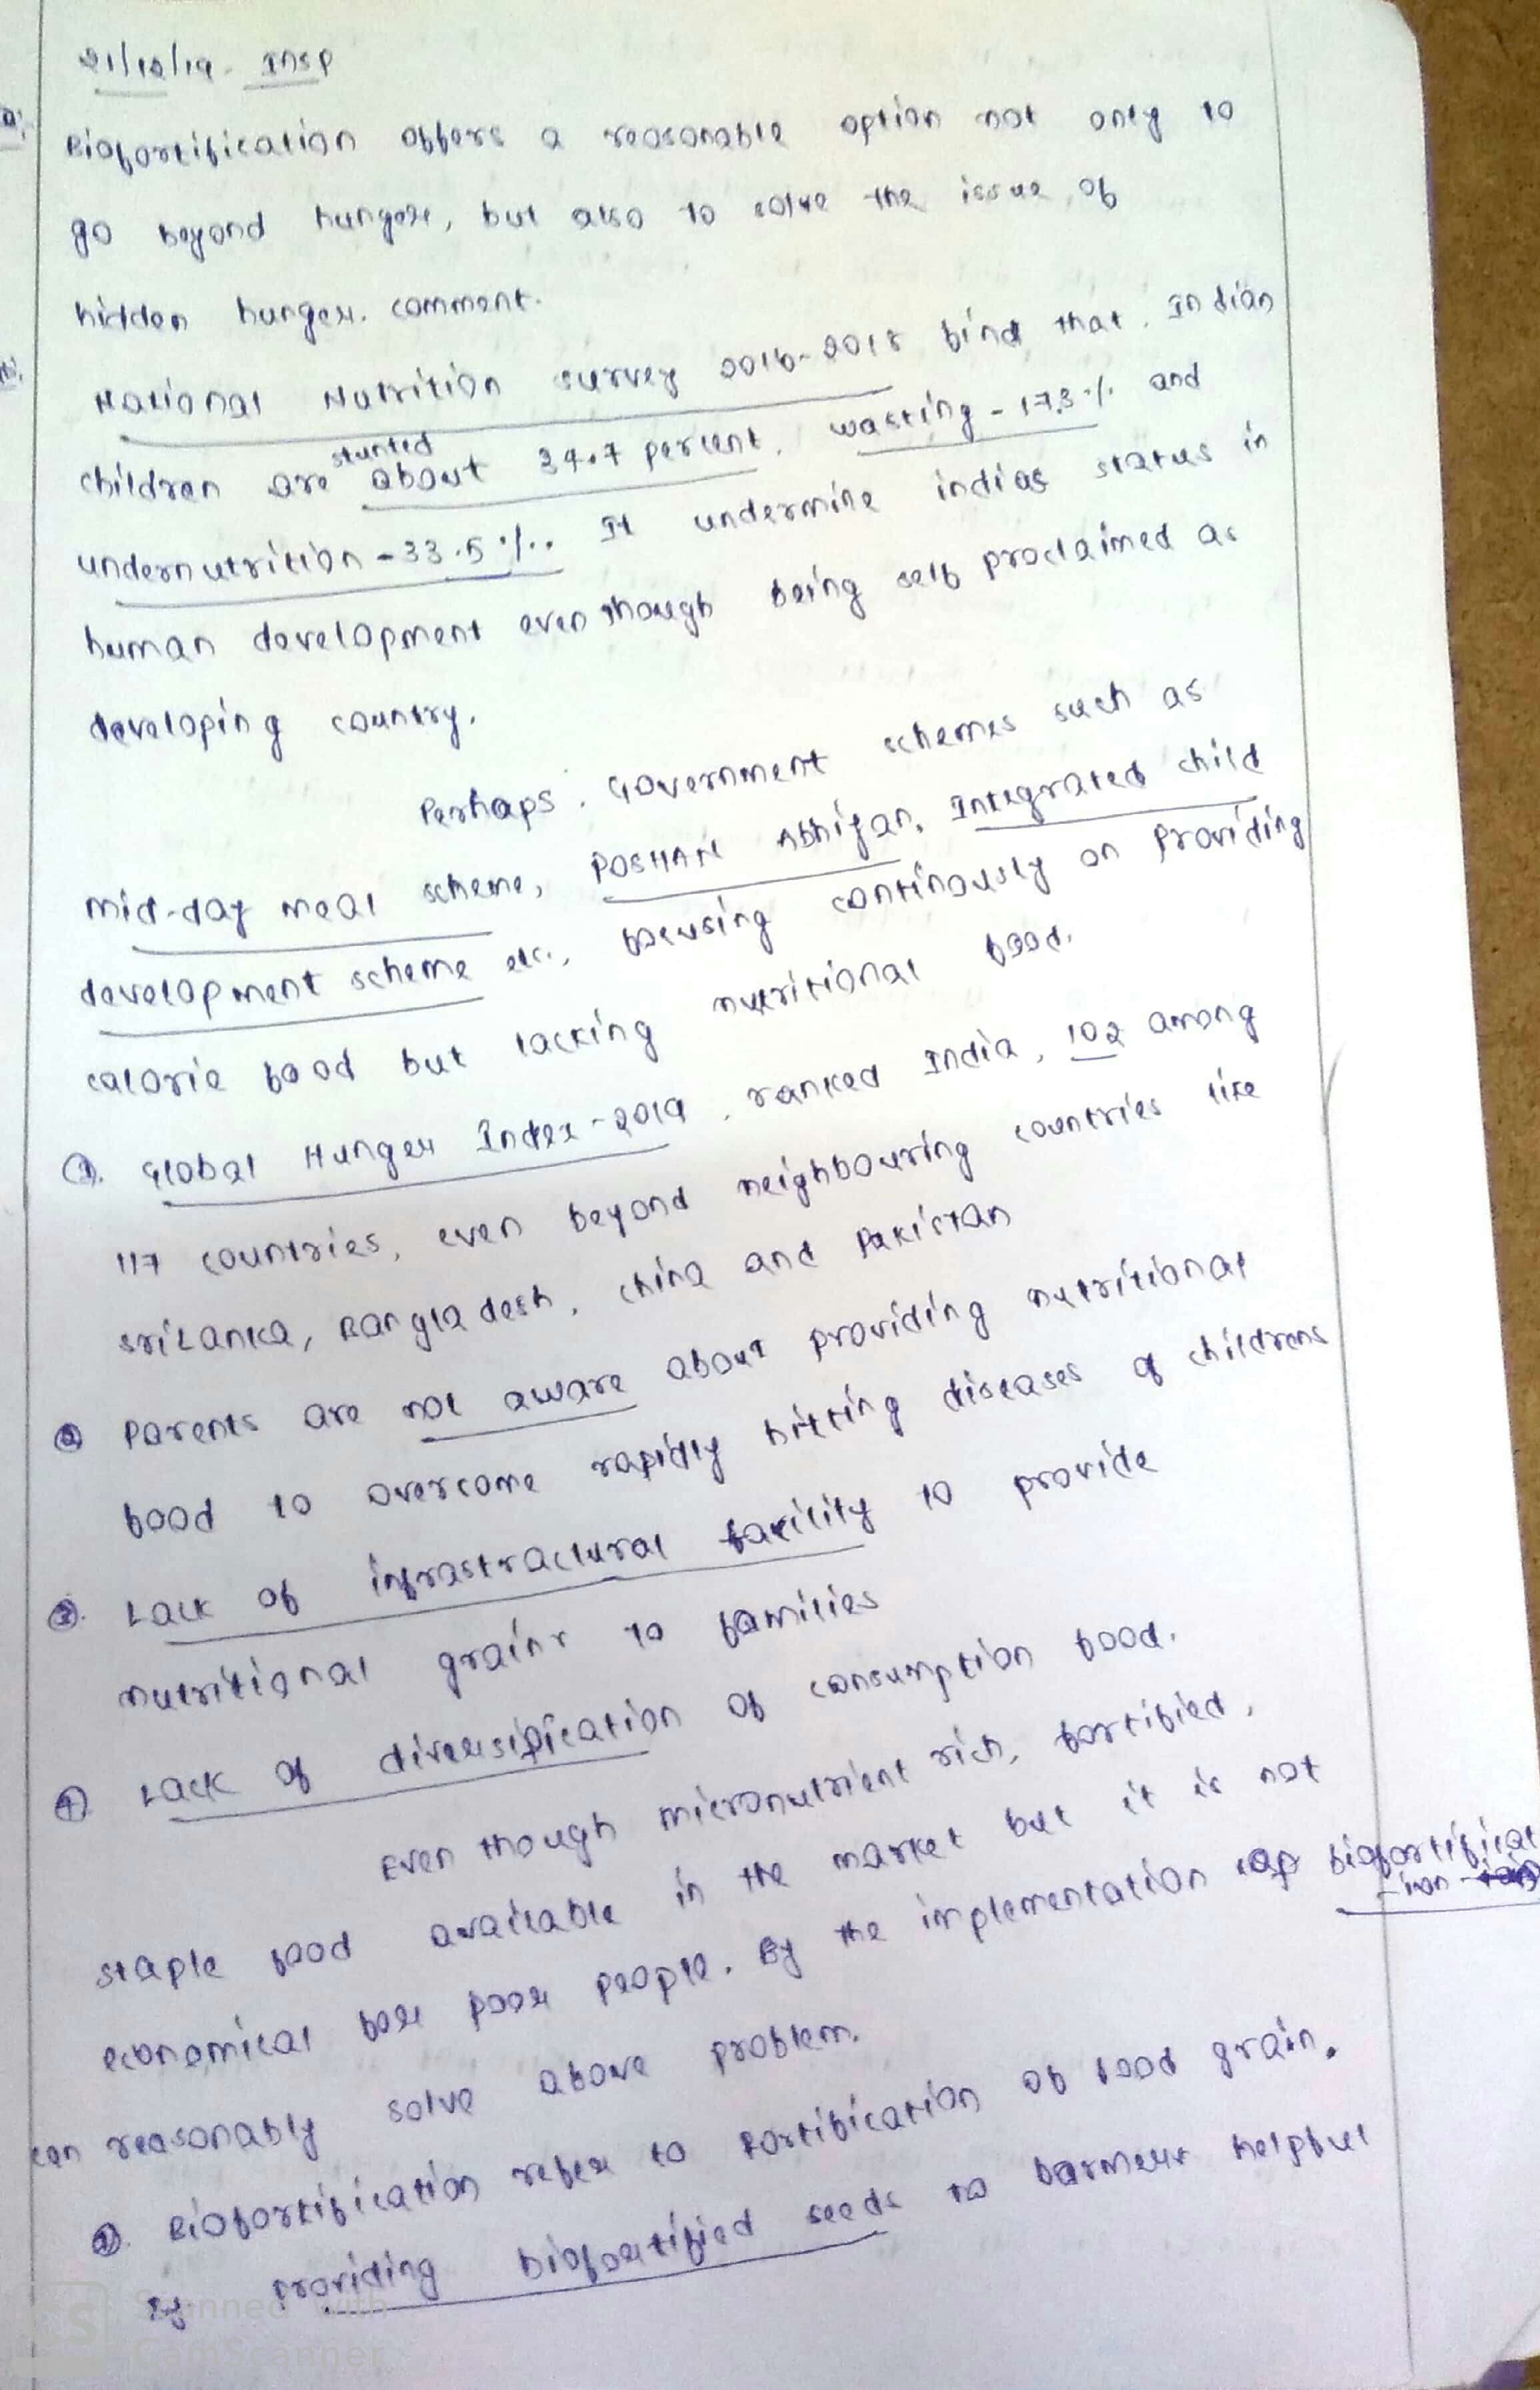 21/10/19. INSP
Q; Biofortification offers a reasonable option not only to
go beyond hunger, but also to solve the issue, of
hidden hunger. comment.
National Nutrition survey 2016-2018 find that, Indian
children are stunted about 34.7 percent, wasting - 17.3% and
undernutrition - 33.5%. It undermine indias status in
human development even though being self proclaimed as
developing country.
Perhaps, Government schemes such as
mid-day meal scheme, POSHAN Abhiyan, Integrated child
development scheme etc., focusing continously on providing
calorie food but lacking nutritional food.
①. Global Hunger Index - 2019, ranked India, 102 among
117 countries, even beyond neighbouring countries like
Sri Lanka, Bangladesh, china and Pakistan
② Parents are not aware about providing nutritional
food to overcome rapidly hitting diseases of childrens
③. Lack of infrastractural facility to provide
nutritional grains to families
④. Lack of diversification of consumption food.
Even though micronutrient rich, fortified,
staple food available in the market but it is not
economical for poor people. By the implementation of biofortificat
-ion
can reasonably solve above problem.
①. Biofortification refer to Fortification of food grain.
By providing biofortified seeds to farmers helpful
Scanned with
CamScanner